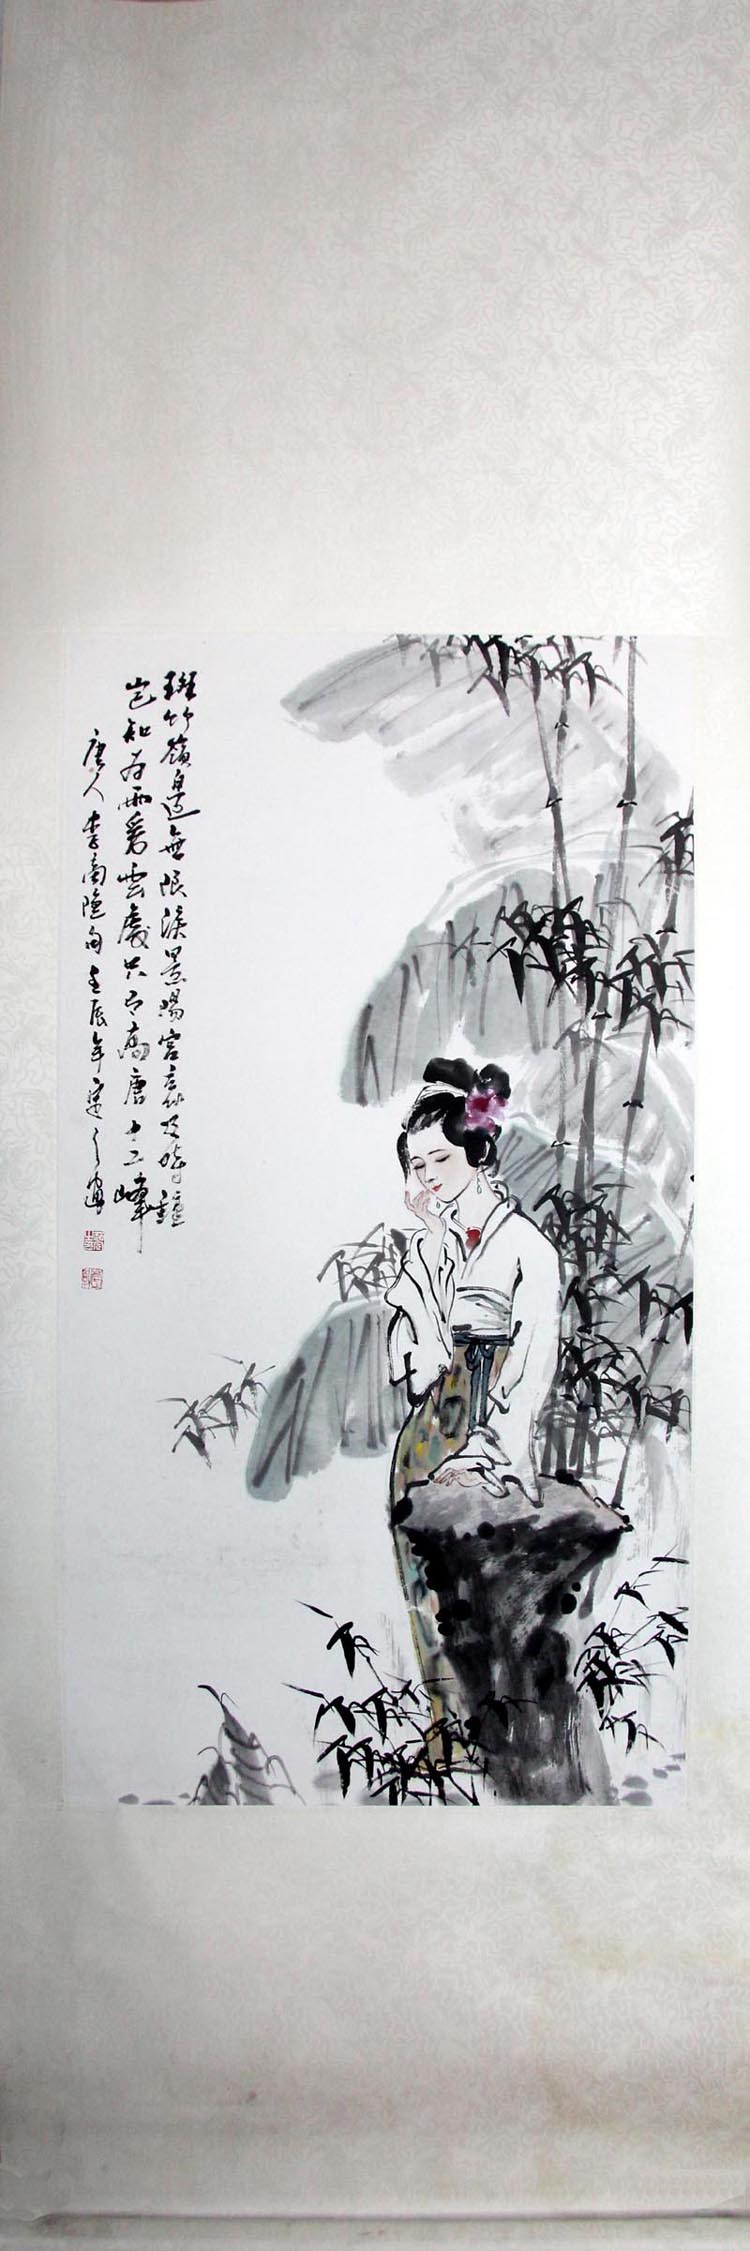 斑竹嶺邊無限淚景陽宮裏及時鐘
豈知為雨為雲處只有高唐十二峰
唐人李商隱句壬辰年